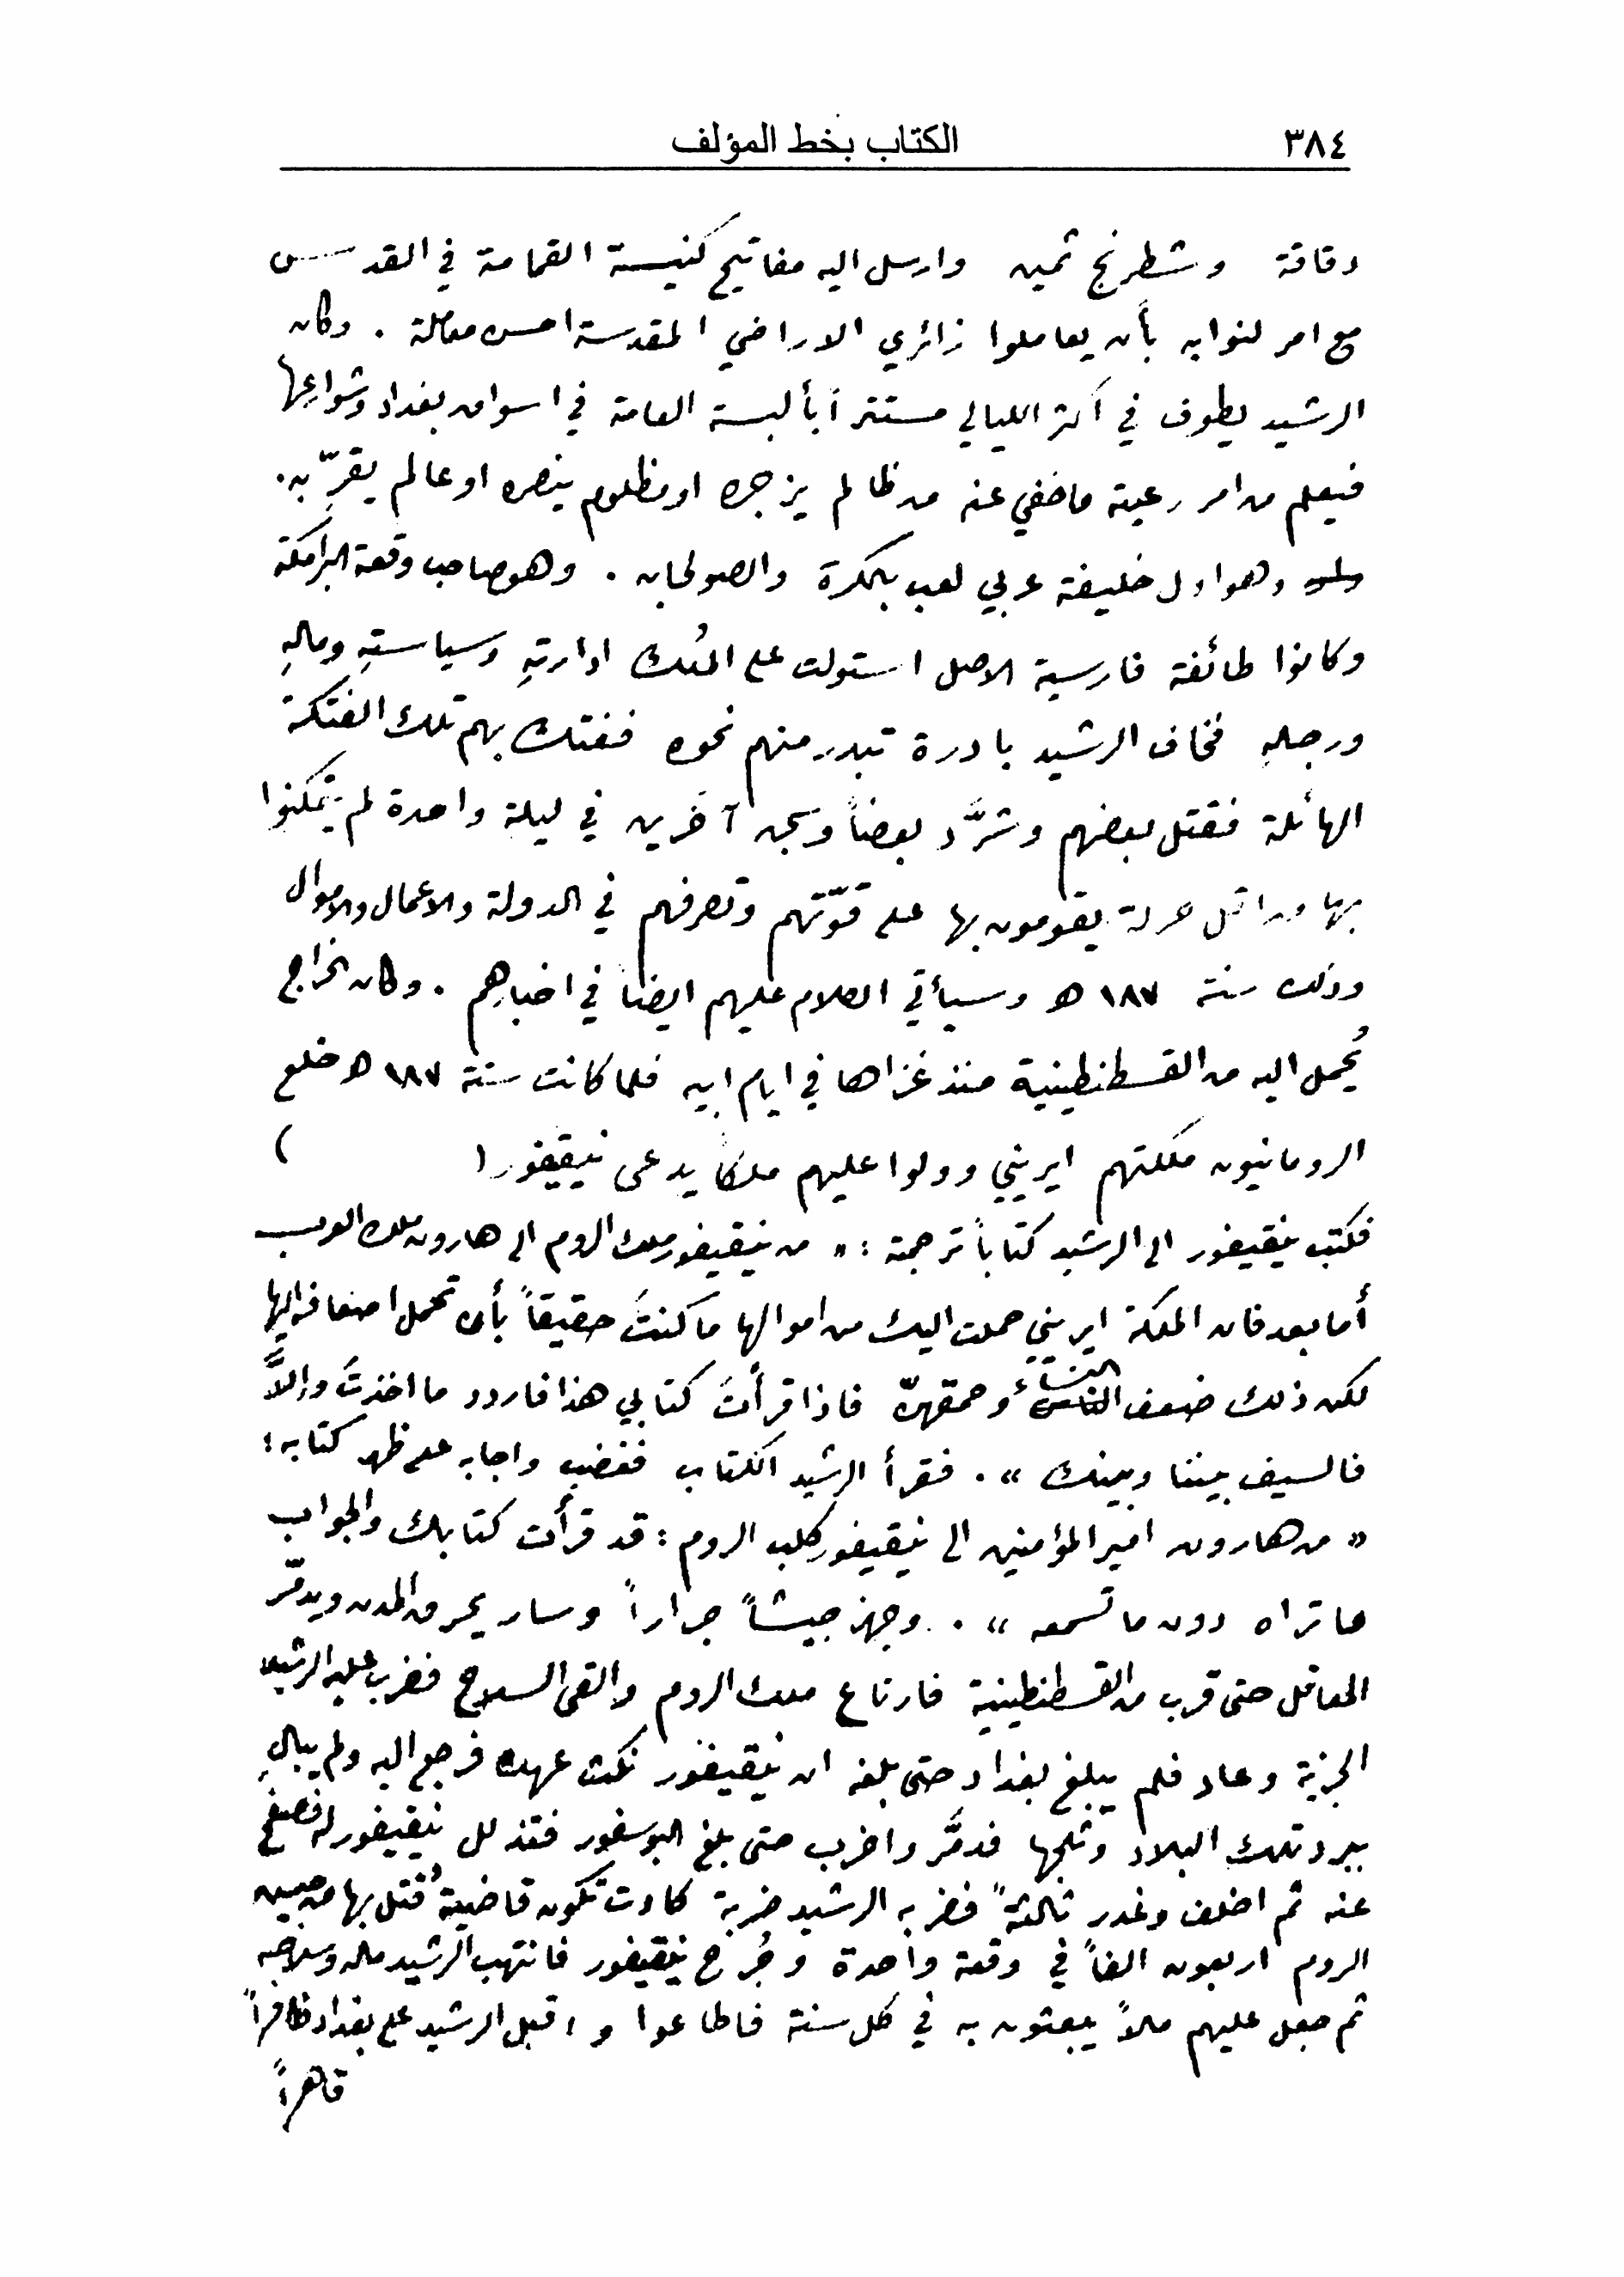 ٣٨٤ الكتاب بخط المؤلف
دقاقة وشطرنج ثمين وارسل اليه مفاتيح كنيسة القمامة في القدس
مع امر لنوابه بأن يعاملوا زائري الاراضي المقدسة احسن معاملة . وكان
الرشيد يطوف في اكثر الليالي مستتراً بألبسة العامة في اسواق بغداد وشوارعها
فيعلم من امر رعيته ما خفي عنه من ظالم يزجره او مظلوم ينصره او عالم يقرّبه.
وهو اول خليفة عربي لعب بالكرة والصولجان . وهو صاحب وقعة البرامكة
وكانوا طائفة فارسية الاصل استولت على المُلك ادارتهِ وسياستهِ ومالهِ
ورجالهِ فخاف الرشيد بادرة تبدر منهم نحوه ففتك بهم تلك الفتكة
الهائلة فقتل بعضهم وشرَّد بعضاً وسجن آخرين في ليلة واحدة لم يتمكنوا
بها من اقل حركة يقومون بها على قوّتهم وتصرفهم في الدولة والاعمال والاموال
وذلك سنة ١٨٧ ه وسيأتي الكلام عليهم ايضاً في اخبارهم . وكان الخراج
يُحمل اليه من القسطنطينية منذ غزاها في ايام ابيه فلما كانت سنة ١٨٧ ه خلع
الرومانيون ملكتهم ايريني وولوا عليهم ملكاً يدعى نيقيفور ( )
فكتب نيقيفور الى الرشيد كتاباً ترجمته : « من نيقيفور ملك الروم الى هارون ملك العرب
أما بعد فان الملكة ايريني حملت اليك من اموالها ما كنتَ حقيقاً بأن تحمل اضعافه اليها
لكن ذلك ضعف النساء وحمقهنّ فاذا قرأتَ كتابي هذا فاردد ما اخذتَ وإلاَّ
فالسيف بيننا وبينك » . فقرأ الرشيد الكتاب فغضب واجابه على ظهر كتابه :
« من هارون امير المؤمنين الى نيقيفور كلب الروم : قد قرأت كتابك والجواب
ما تراه دون ما تسمعه » . وجهز جيشاً جراراً وسار يحرق المدن ويدمّر
المعاقل حتى قرب من القسطنطينية فارتاع ملك الروم والقى السلاح فضرب عليه الرشيد
الجزية وعاد فلم يبلغ بغداد حتى بلغه ان نيقيفور نكث عهده فرجع اليه ولم يبالِ
ببرد تلك البلاد وثلجها فدمَّر واخرب حتى بلغ البوسفور فتذلل نيقيفور له فصفح
عنه ثم اخلف وغدر ثالثةً فضربه الرشيد ضربة كادت تكون قاضيةً قُتل بها من جيش
الروم اربعون الفاً في وقعة واحدة وجُرح نيقيفور فانتهب الرشيد ماله وسلاحه
ثم جعل عليهم مالاً يبعثون به في كل سنة فاطاعوا واقبل الرشيد على بغداد ظافراً
قاهراً